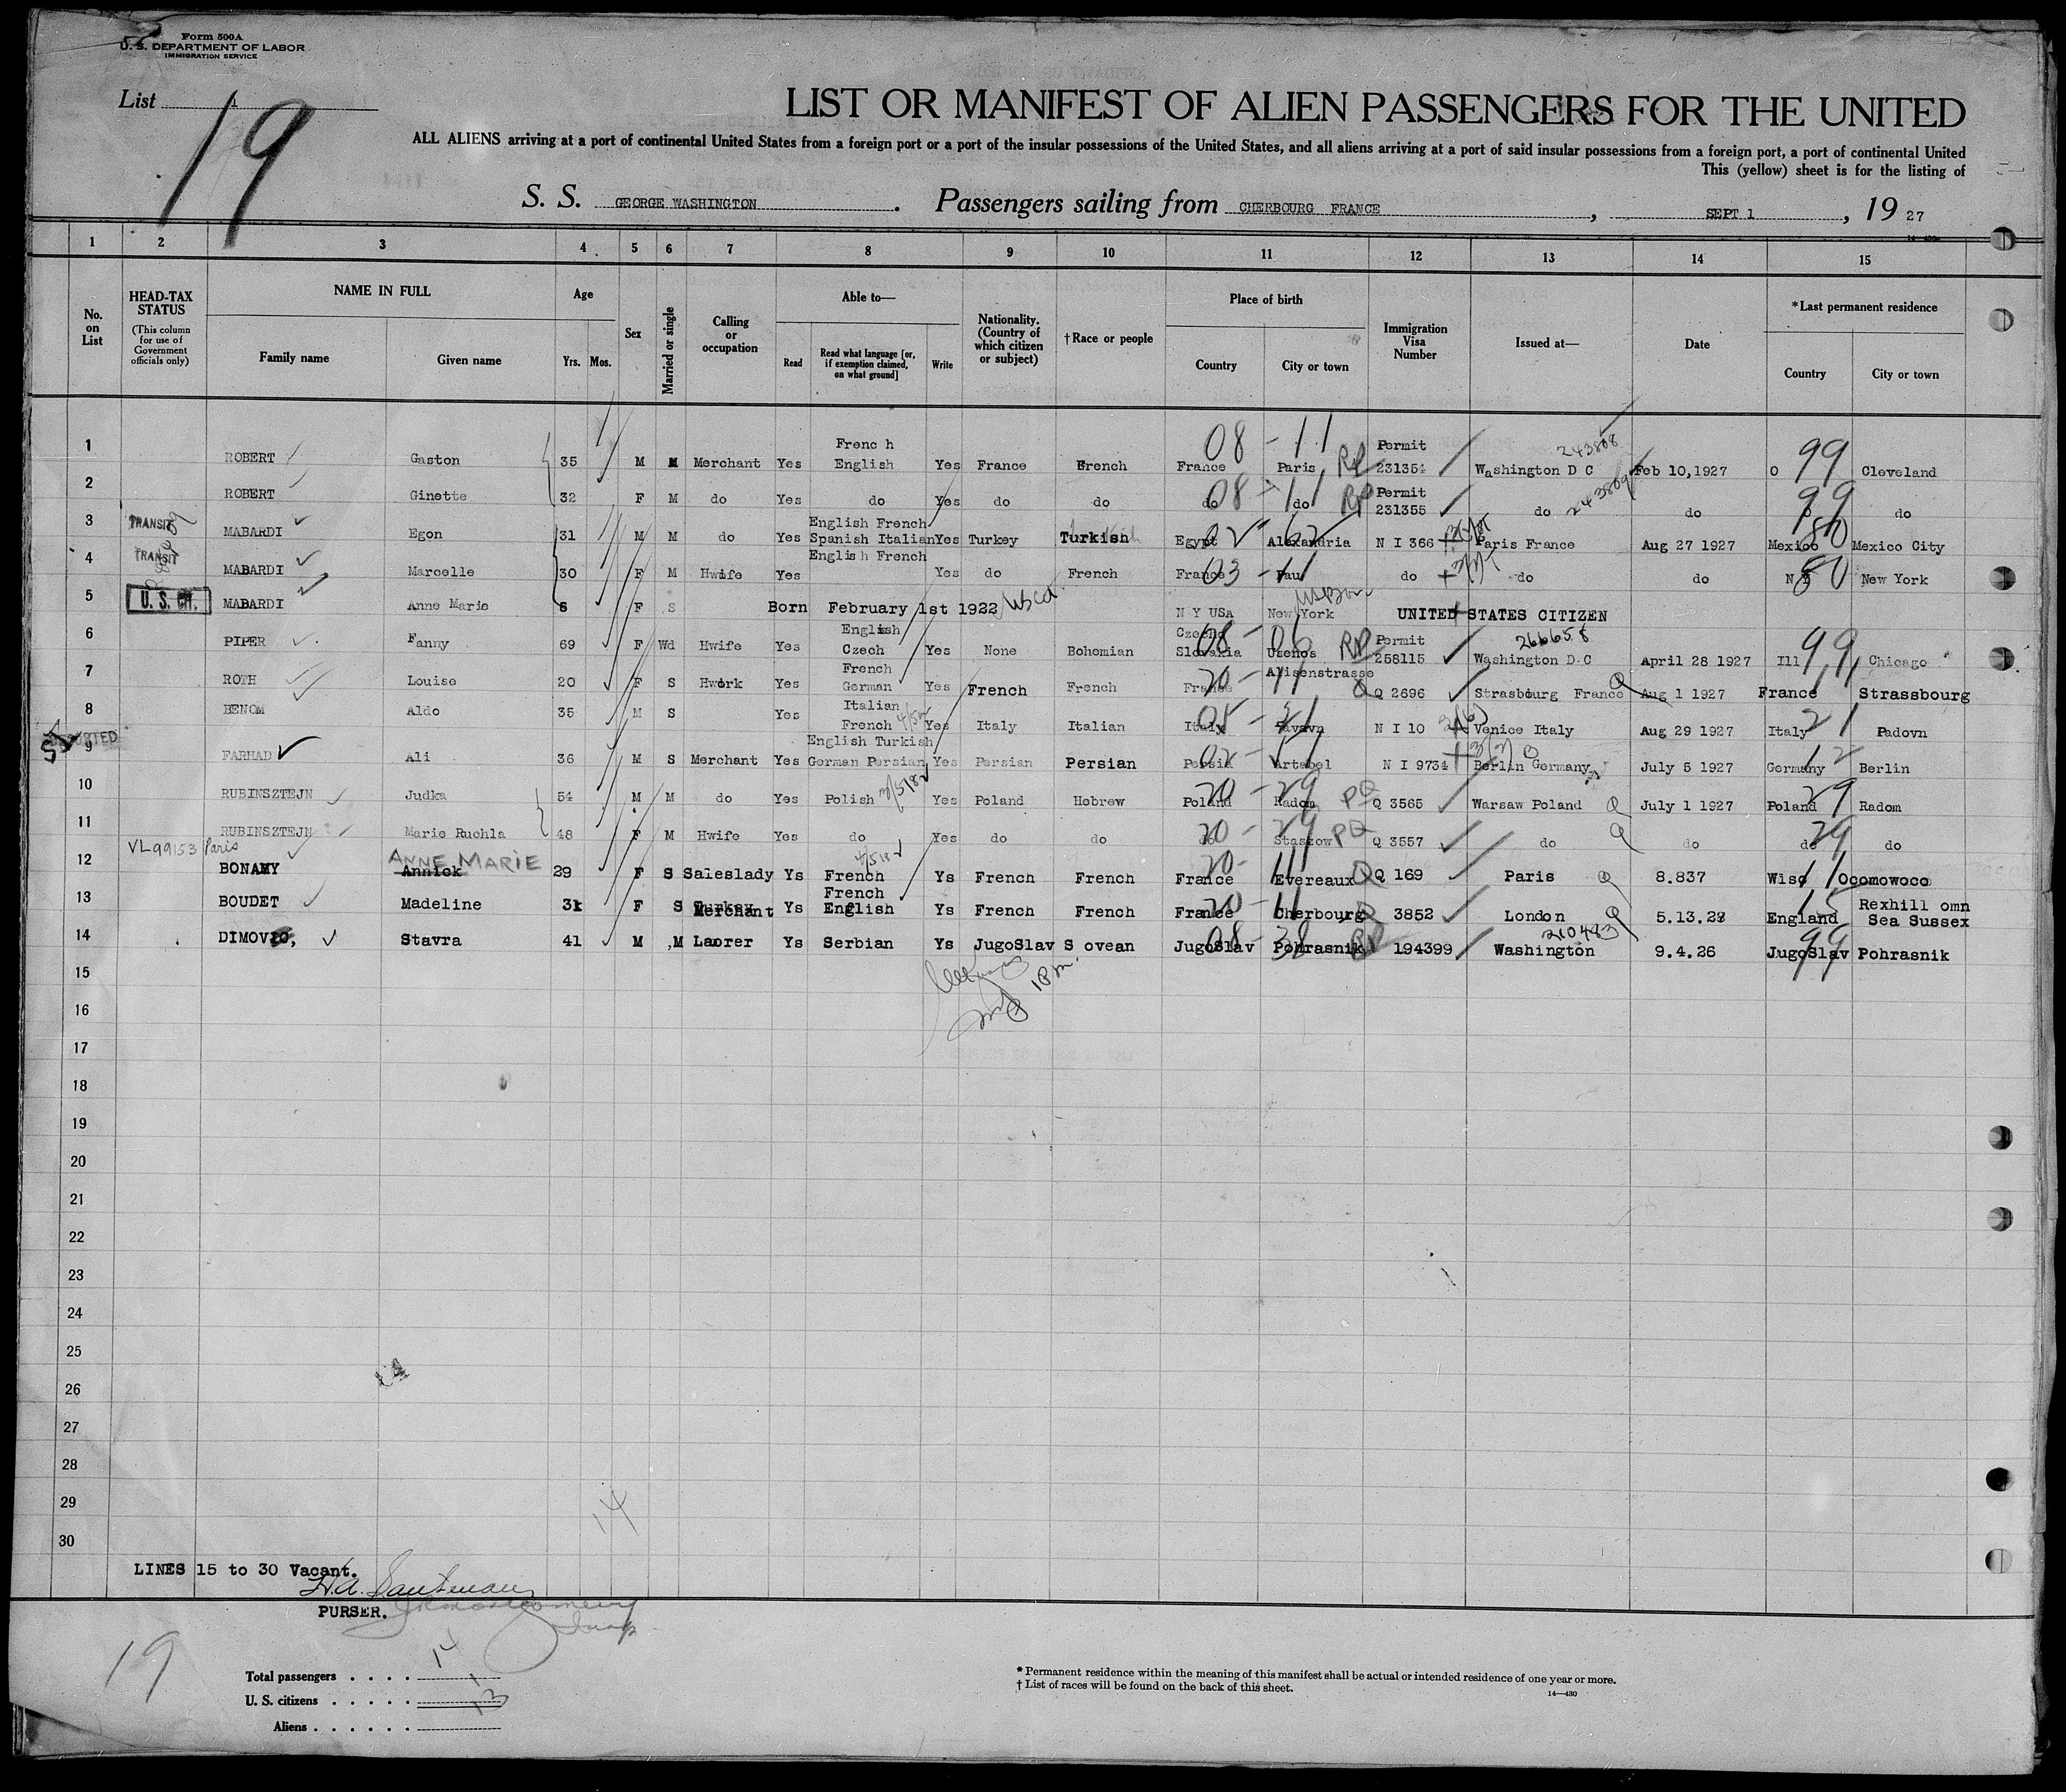 Form 500A
U. S. DEPARTMENT OF LABOR
IMMIGRATION SERVICE
List 1
19
LIST OR MANIFEST OF ALIEN PASSENGERS FOR THE UNITED
ALL ALIENS arriving at a port of continental United States from a foreign port or a port of the insular possessions of the United States, and all aliens arriving at a port of said insular possessions from a foreign port, a port of continental United
This (yellow) sheet is for the listing of
S. S. GEORGE WASHINGTON. Passengers sailing from CHERBOURG FRANCE, SEPT 1, 19 27
1 2 3 4 5 6 7 8 9 10 11 12 13 14 15
No. on List
HEAD-TAX STATUS
(This column for use of Government officials only)
NAME IN FULL
Family name Given name
Age
Yrs. Mos.
Sex
Married or single
Calling or occupation
Able to—
Read
Read what language [or, if exemption claimed, on what ground]
Write
Nationality. (Country of which citizen or subject)
†Race or people
Place of birth
Country City or town
Immigration Visa Number
Issued at—
Date
*Last permanent residence
Country City or town
1 ROBERT Gaston 35 M M Merchant Yes Frenc h English Yes France French France 08 - 11 Paris RP Permit 231354 Washington D C 243808 Feb 10,1927 O 99 Cleveland
2 ROBERT Ginette 32 F M do Yes do Yes do do do 08 - 11 do RP Permit 231355 do 243809 do 99 do
3 TRANSIT MABARDI Egon 31 M M do Yes English French Spanish Italian Yes Turkey Turkish Egypt 02 62 Alexandria N I 366 Paris France Aug 27 1927 Mexico 80 Mexico City
4 TRANSIT MABARDI Marcelle 30 F M Hwife Yes English French Yes do French France 03 - 11 Pau do do do N Y 80 New York
5 U. S. CIT. MABARDI Anne Marie 5 F S Born February 1st 1922 N Y USA New York UNITED STATES CITIZEN
6 PIPER Fanny 69 F Wd Hwife Yes English Czech Yes None Bohemian Czecho Slovakia 08 - 06 RP Permit 258115 Washington D.C 266658 April 28 1927 Ill 99 Chicago
7 ROTH Louise 20 F S Hwork Yes French German Yes French French France 20 - 11 Q Q 2696 Strasbourg France Q Aug 1 1927 France Strassbourg
8 BENOM Aldo 35 M S Yes Italian French Yes Italy Italian Italy N I 10 Venice Italy Aug 29 1927 Italy 21 Padovn
9 FARHAD Ali 36 M S Merchant Yes English Turkish German Persian Yes Persian Persian Persia N I 9734 Berlin Germany July 5 1927 Germany 12 Berlin
10 RUBINSZTEJN Judka 54 M M do Yes Polish Yes Poland Hebrew Poland 20 - 29 Radom PQ Q 3565 Warsaw Poland Q July 1 1927 Poland 29 Radom
11 RUBINSZTEJN Marie Ruchla 48 F M Hwife Yes do Yes do do do 20 - 29 Staszow PQ Q 3557 do Q do do 29 do
VL99153 Paris
12 BONAMY Annick ANNE MARIE 29 F S Saleslady Ys French Ys French French France 20- 11 Evereaux Q Q 169 Paris Q 8.837 Wisc Ocomowoco
13 BOUDET Madeline 31 F S Merchant Ys French English Ys French French France 20 - 11 Cherbourg Q 3852 London Q 5.13.28 England 15 Rexhill omn Sea Sussex
14 DIMOVIC, Stavra 41 M M Laorer Ys Serbian Ys JugoSlav S ovean JugoSlav 08 - 38 Pohrasnik RP 194399 Washington 210483 9.4.26 JugoSlav 99 Pohrasnik
15
16
17
18
19
20
21
22
23
24
25
26
27
28
29
30
14
LINES 15 to 30 Vacant.
PURSER.
19
Total passengers . . . . 14
U. S. citizens . . . . . 1
Aliens . . . . . . 13
* Permanent residence within the meaning of this manifest shall be actual or intended residence of one year or more.
† List of races will be found on the back of this sheet.
14—430